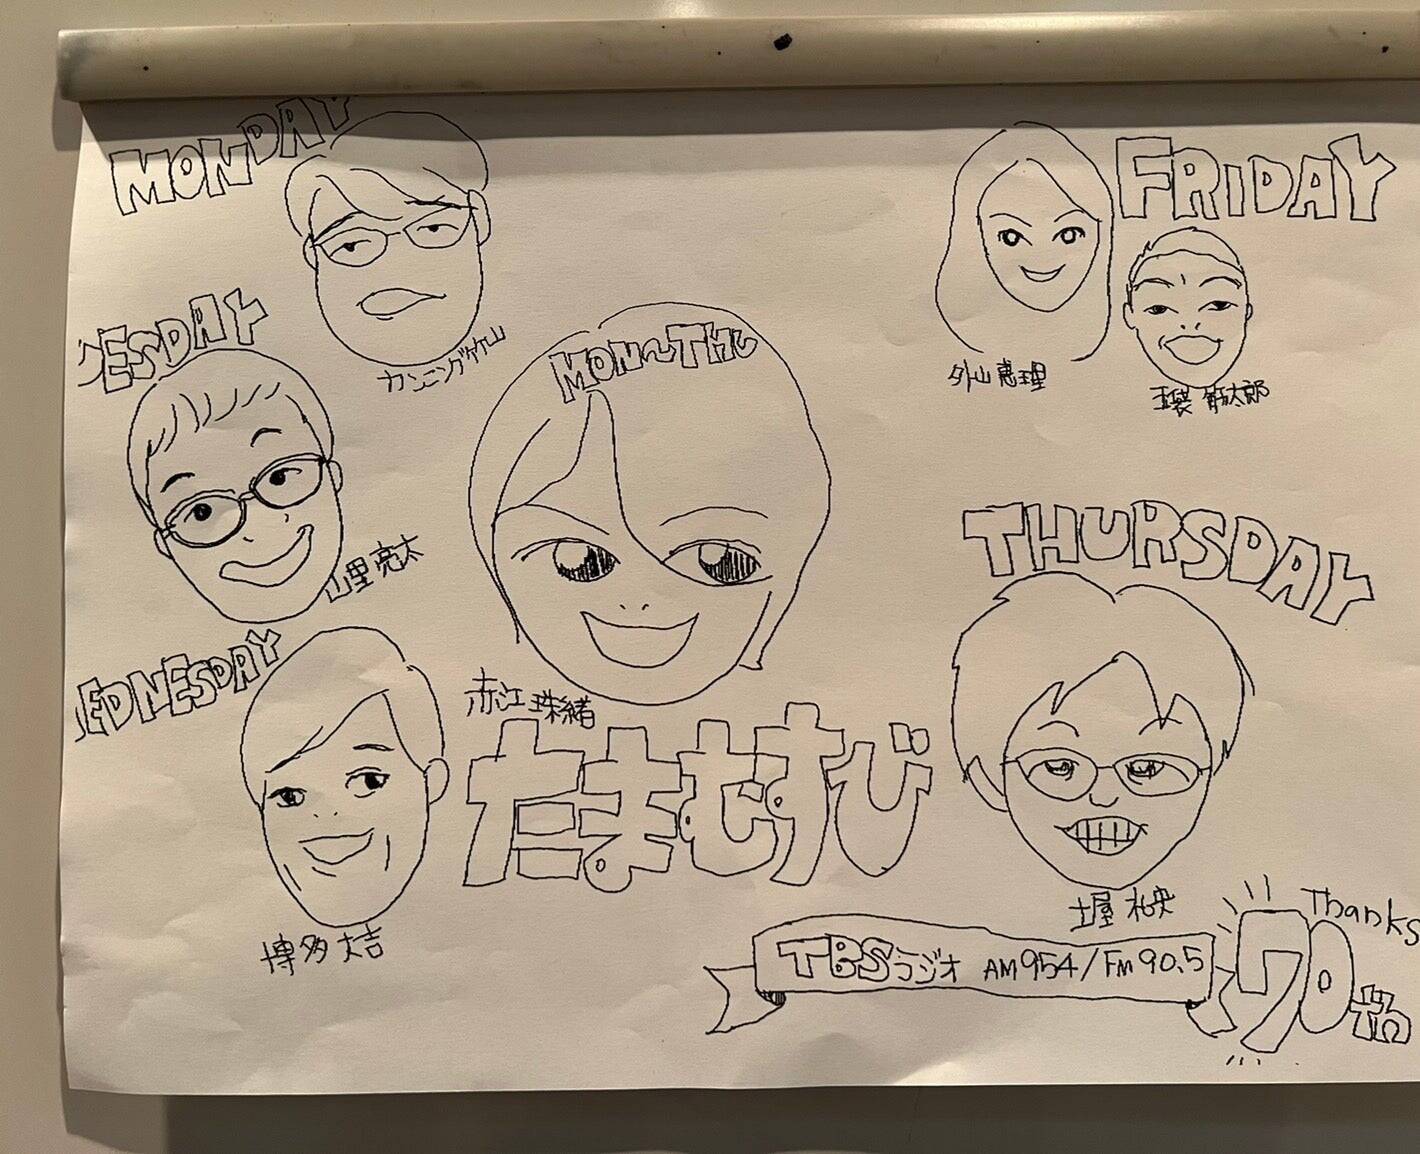 MONDAY
カンニング竹山
FRIDAY
外山惠理
玉袋筋太郎
ESDAY
山里亮太
MON〜THU
赤江珠緒
THURSDAY
土屋礼央
EDNESDAY
博多大吉
たまむすび
TBSラジオ AM954/FM90.5
Thanks
70th